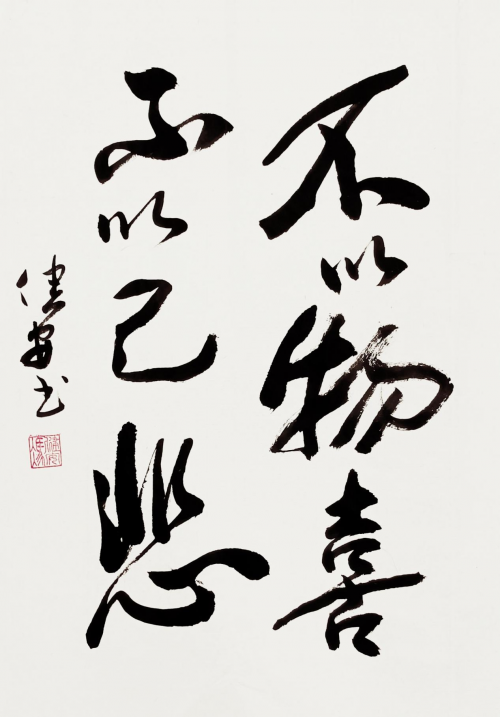 不以物喜
不以己悲
书